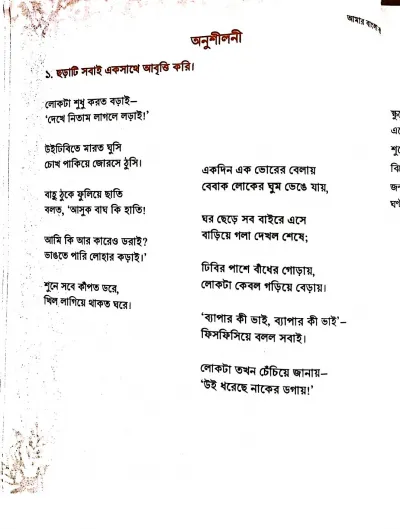 আমার বাংলা
অনুশীলনী
১. ছড়াটি সবাই একসাথে আবৃত্তি করি।
লোকটা শুধু করত বড়াই–
‘দেখে নিতাম লাগলে লড়াই!’
উইঢিবিতে মারত ঘুসি
চোখ পাকিয়ে জোরসে ঠুসি।
বাহু ঠুকে ফুলিয়ে ছাতি
বলত, ‘আসুক বাঘ কি হাতি!
আমি কি আর কারেও ডরাই?
ভাঙতে পারি লোহার কড়াই।’
শুনে সবে কাঁপত ডরে,
খিল লাগিয়ে থাকত ঘরে।
একদিন এক ভোরের বেলায়
বেবাক লোকের ঘুম ভেঙে যায়,
ঘর ছেড়ে সব বাইরে এসে
বাড়িয়ে গলা দেখল শেষে;
ঢিবির পাশে বাঁধের গোড়ায়,
লোকটা কেবল গড়িয়ে বেড়ায়।
‘ব্যাপার কী ভাই, ব্যাপার কী ভাই’–
ফিসফিসিয়ে বলল সবাই।
লোকটা তখন চেঁচিয়ে জানায়–
‘উই ধরেছে নাকের ডগায়!’